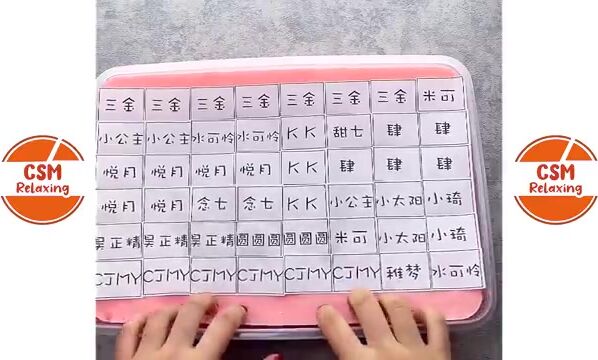 三金 三金 三金 三金 三金 三金 三金 米可
小公主 小公主 水可怜 水可怜 KK 甜七 肆 肆
悦月 悦月 悦月 悦月 KK 肆 肆 肆
悦月 悦月 念七 念七 KK 小公主 小太阳 小琦
吴正精 吴正精 吴正精 圆圆圆 圆圆圆 米可 小太阳 小琦
CJMY CJMY CJMY CJMY CJMY CJMY 稚梦 水可怜
CSM
Relaxing
CSM
Relaxing